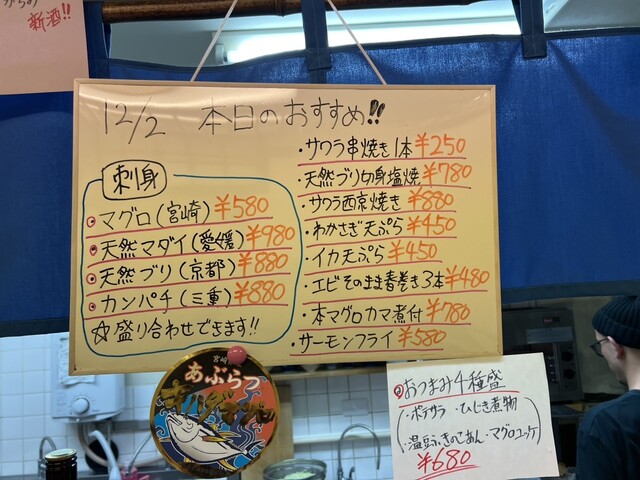 新酒!!
12/2 本日のおすすめ!!
刺身
マグロ(宮崎) ¥580
天然マダイ(愛媛) ¥980
天然ブリ(京都) ¥880
カンパチ(三重) ¥880
☆盛り合わせできます!!
・サワラ串焼き1本 ¥250
・天然ブリ切身塩焼 ¥780
・サワラ西京焼き ¥880
・わかさぎ天ぷら ¥450
・イカ天ぷら ¥450
・エビそのまま春巻き3本 ¥480
・本マグロカマ煮付 ¥780
・サーモンフライ ¥580
宮崎
あぶらつ
おつまみ4種盛
・ポテサラ ・ひじき煮物
・温豆ふきのこあん ・マグロユッケ
¥680